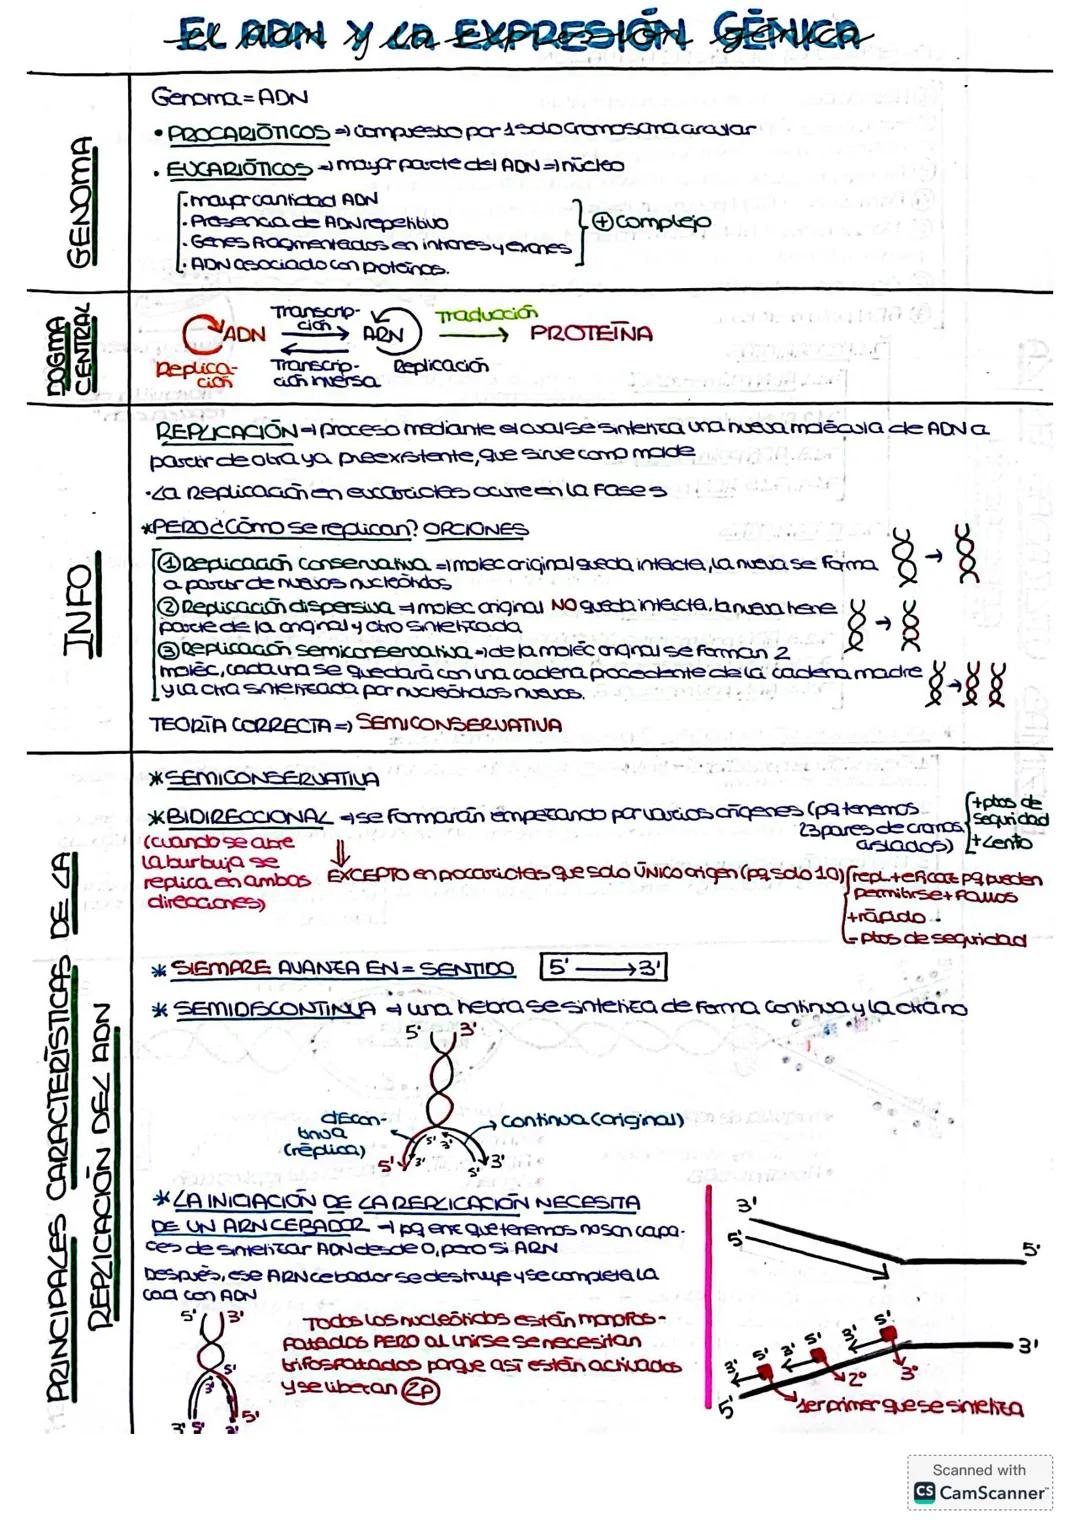 EL ADN Y LA EXPRESIÓN GÉNICA
GENOMA
Genoma = ADN
• PROCARIÓTICOS ⇒ compuesto por 1 solo cromosoma circular
• EUCARIÓTICOS → mayor parte del ADN ⇒ núcleo
• mayor cantidad ADN
• Presencia de ADN repetitivo
• Genes fragmentados en intrones y exones
• ADN asociado con proteínas.
⊕ complejo
DOGMA CENTRAL
ADN
Replica-
ción
Transcrip-
ción
Transcrip-
ción inversa
ARN
Replicación
Traducción
PROTEÍNA
INFO
REPLICACIÓN → proceso mediante el cual se sintetiza una nueva molécula de ADN a
partir de otra ya preexistente, que sirve como molde
• La Replicación en eucariotas ocurre en la fase s
*PERO ¿Cómo se replican? OPCIONES
① Replicación conservativa ⇒ molec original queda intacta, la nueva se forma
a partir de nuevos nucleótidos
② Replicación dispersiva → molec original NO queda intacta, la nueva tiene
parte de la original y otro sintetizada
③ Replicación semiconservativa → de la moléc original se forman 2
moléc, cada una se quedará con una cadena procedente de la cadena madre
y la otra sintetizada por nucleótidos nuevos.
TEORÍA CORRECTA ⇒ SEMICONSERVATIVA
PRINCIPALES CARACTERÍSTICAS DE LA
REPLICACIÓN DEL ADN
* SEMICONSERVATIVA
* BIDIRECCIONAL → se formarán empezando por varios orígenes (pq tenemos
23 pares de croms.
aislados)
+ ptos de
seguridad
+ Lento
(cuando se abre
la burbuja se
replica en ambas
direcciones)
EXCEPTO en procariotas que solo ÚNICO origen (pq solo 1 O)
repl. + eficaz pq pueden
permitirse + fallos
+ rápido
- ptos de seguridad
* SIEMPRE AVANZA EN = SENTIDO 5' → 3'
* SEMIDISCONTINUA → una hebra se sintetiza de forma continua y la otra no
5' 3'
discon-
tinua
(réplica)
continua (original)
5' 3'
5' 3' 5' 3'
* LA INICIACIÓN DE LA REPLICACIÓN NECESITA
DE UN ARN CEBADOR → pq enz que tenemos no son capa-
ces de sintetizar ADN desde 0, pero si ARN
Después, ese ARN cebador se destruye y se completa la
cad con ADN
5' 3'
5'
3'
3' 5' 3' 5'
Todos los nucleótidos están monofos-
fatados PERO al unirse se necesitan
trifosfatados porque así están activados
y se liberan 2P
3'
5'
5'
3' 5' 3' 5' 3' 5'
3'
3º
2º
5'
1er primer que se sintetiza
Scanned with
CS CamScanner